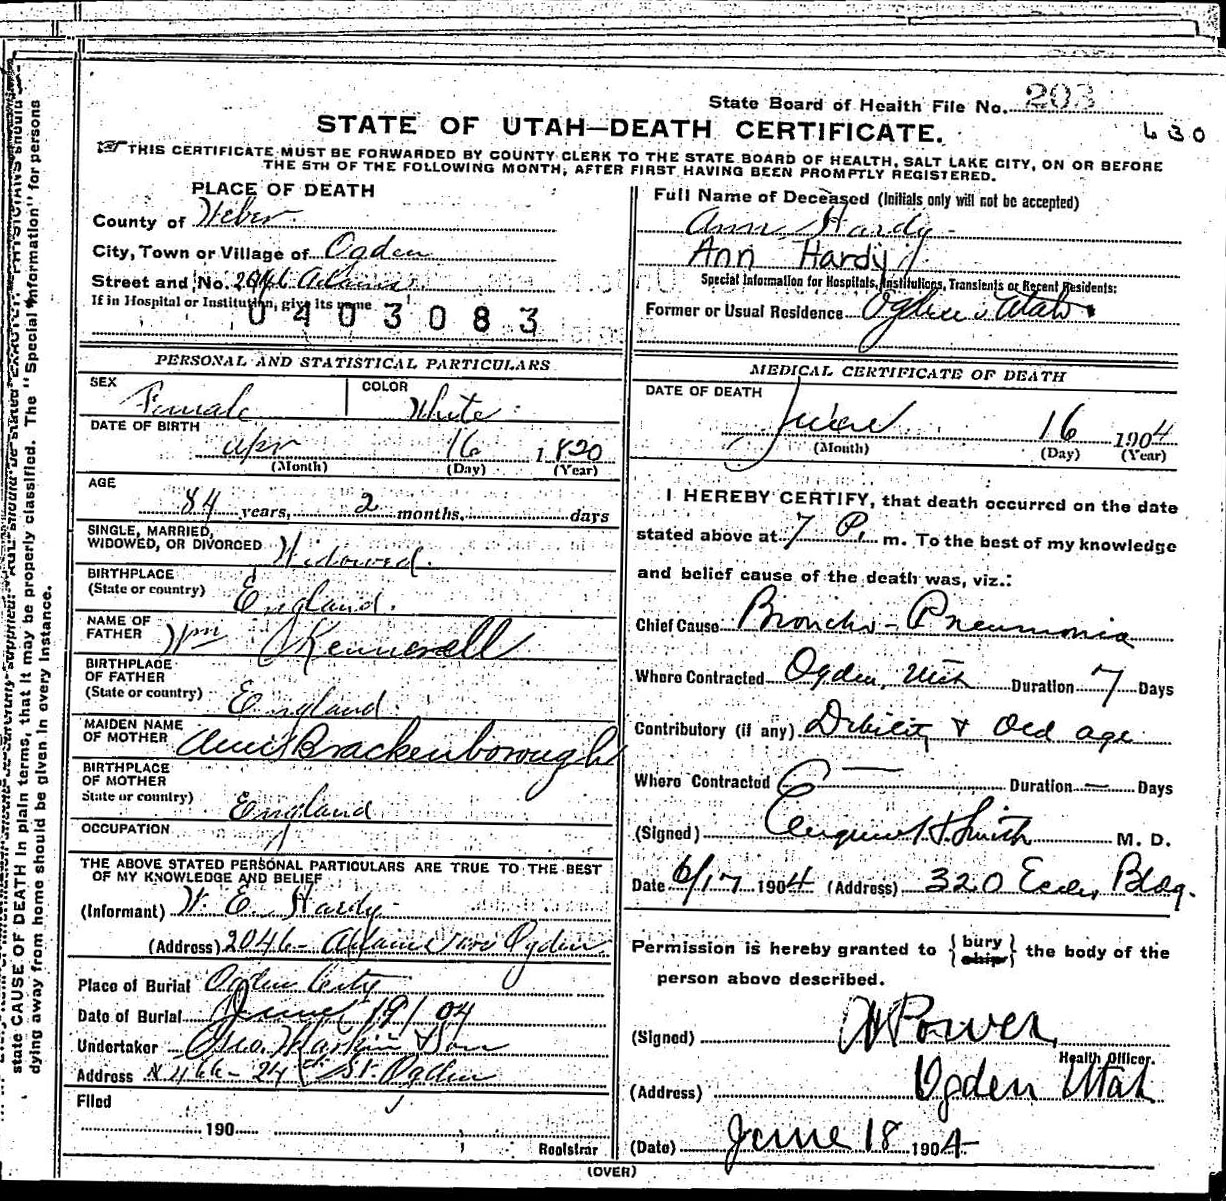 State Board of Health File No. 203
630
STATE OF UTAH—DEATH CERTIFICATE.
THIS CERTIFICATE MUST BE FORWARDED BY COUNTY CLERK TO THE STATE BOARD OF HEALTH, SALT LAKE CITY, ON OR BEFORE
THE 5TH OF THE FOLLOWING MONTH, AFTER FIRST HAVING BEEN PROMPTLY REGISTERED.
PLACE OF DEATH
County of Weber
City, Town or Village of Ogden
Street and No. 2046 Adams
If in Hospital or Institution, give its name
0403083
Full Name of Deceased (Initials only will not be accepted)
Ann Hardy
Ann Hardy
Special Information for Hospitals, Institutions, Transients or Recent Residents:
Former or Usual Residence Ogden Utah
PERSONAL AND STATISTICAL PARTICULARS
SEX Female COLOR White
DATE OF BIRTH
Apr 16 1820
(Month) (Day) (Year)
AGE
84 years, 2 months, days
SINGLE, MARRIED,
WIDOWED, OR DIVORCED Widowed.
BIRTHPLACE
(State or country) England.
NAME OF
FATHER Wm Kennewell
BIRTHPLACE
OF FATHER
(State or country) England.
MAIDEN NAME
OF MOTHER Brackenborough
BIRTHPLACE
OF MOTHER
State or country) England
OCCUPATION
THE ABOVE STATED PERSONAL PARTICULARS ARE TRUE TO THE BEST
OF MY KNOWLEDGE AND BELIEF
(Informant) W. E. Hardy
(Address) 2046 - Adams Ave Ogden
Place of Burial Ogden City
Date of Burial June 19/04
Undertaker Geo. Larkin & Son
Address 466 - 24th St. Ogden
Filed
190
Registrar
MEDICAL CERTIFICATE OF DEATH
DATE OF DEATH
June 16 1904
(Month) (Day) (Year)
I HEREBY CERTIFY, that death occurred on the date
stated above at 7 P. m. To the best of my knowledge
and belief cause of the death was, viz.:
Chief Cause Broncho-Pneumonia
Where Contracted Ogden, Utah Duration 7 Days
Contributory (if any) Debility & Old age
Where Contracted Duration — Days
(Signed) Smith M. D.
Date 6/17 1904 (Address) 320 Eccles Bldg.
Permission is hereby granted to {bury ship} the body of the
person above described.
(Signed) Power
Health Officer.
(Address) Ogden Utah
(Date) June 18 1904
(OVER)
state CAUSE OF DEATH in plain terms, that it may be properly classified. The "Special Information" for persons
dying away from home should be given in every instance.